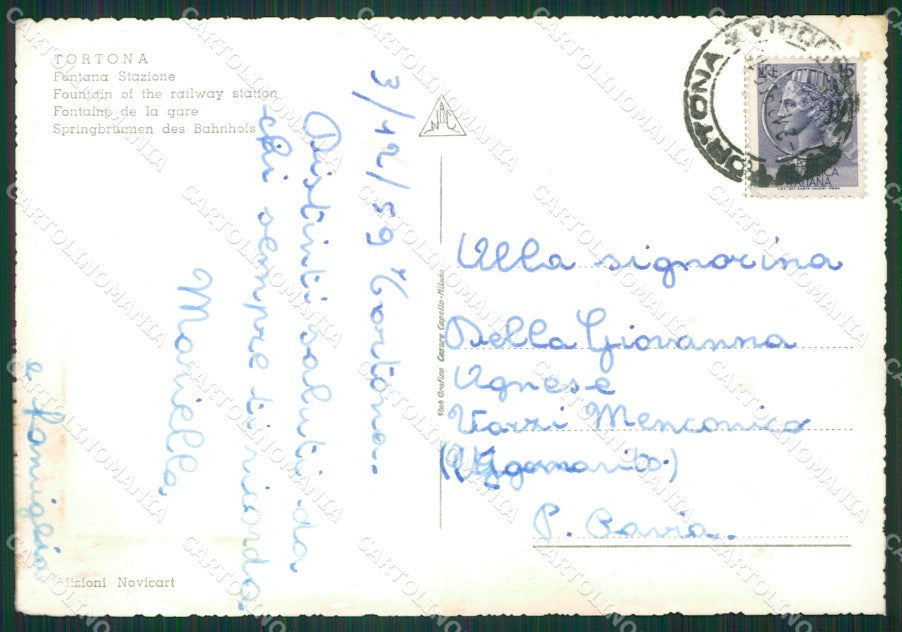 TORTONA
Fontana Stazione
Fountain of the railway station
Fontaine de la gare
Springbrunnen des Bahnhofs
3/12/59 Tortona.
Distinti saluti da
chi sempre ti ricorda
Mariella
e famiglia
Edizioni Novicart
Stab. Grafico Cesare Capello - Milano
TORTONA
15
ITALIANA
Alla signorina
Della Giovanna
Agnese
Varzi Menconico
P. Pavia.
CARTOLINOMANIA